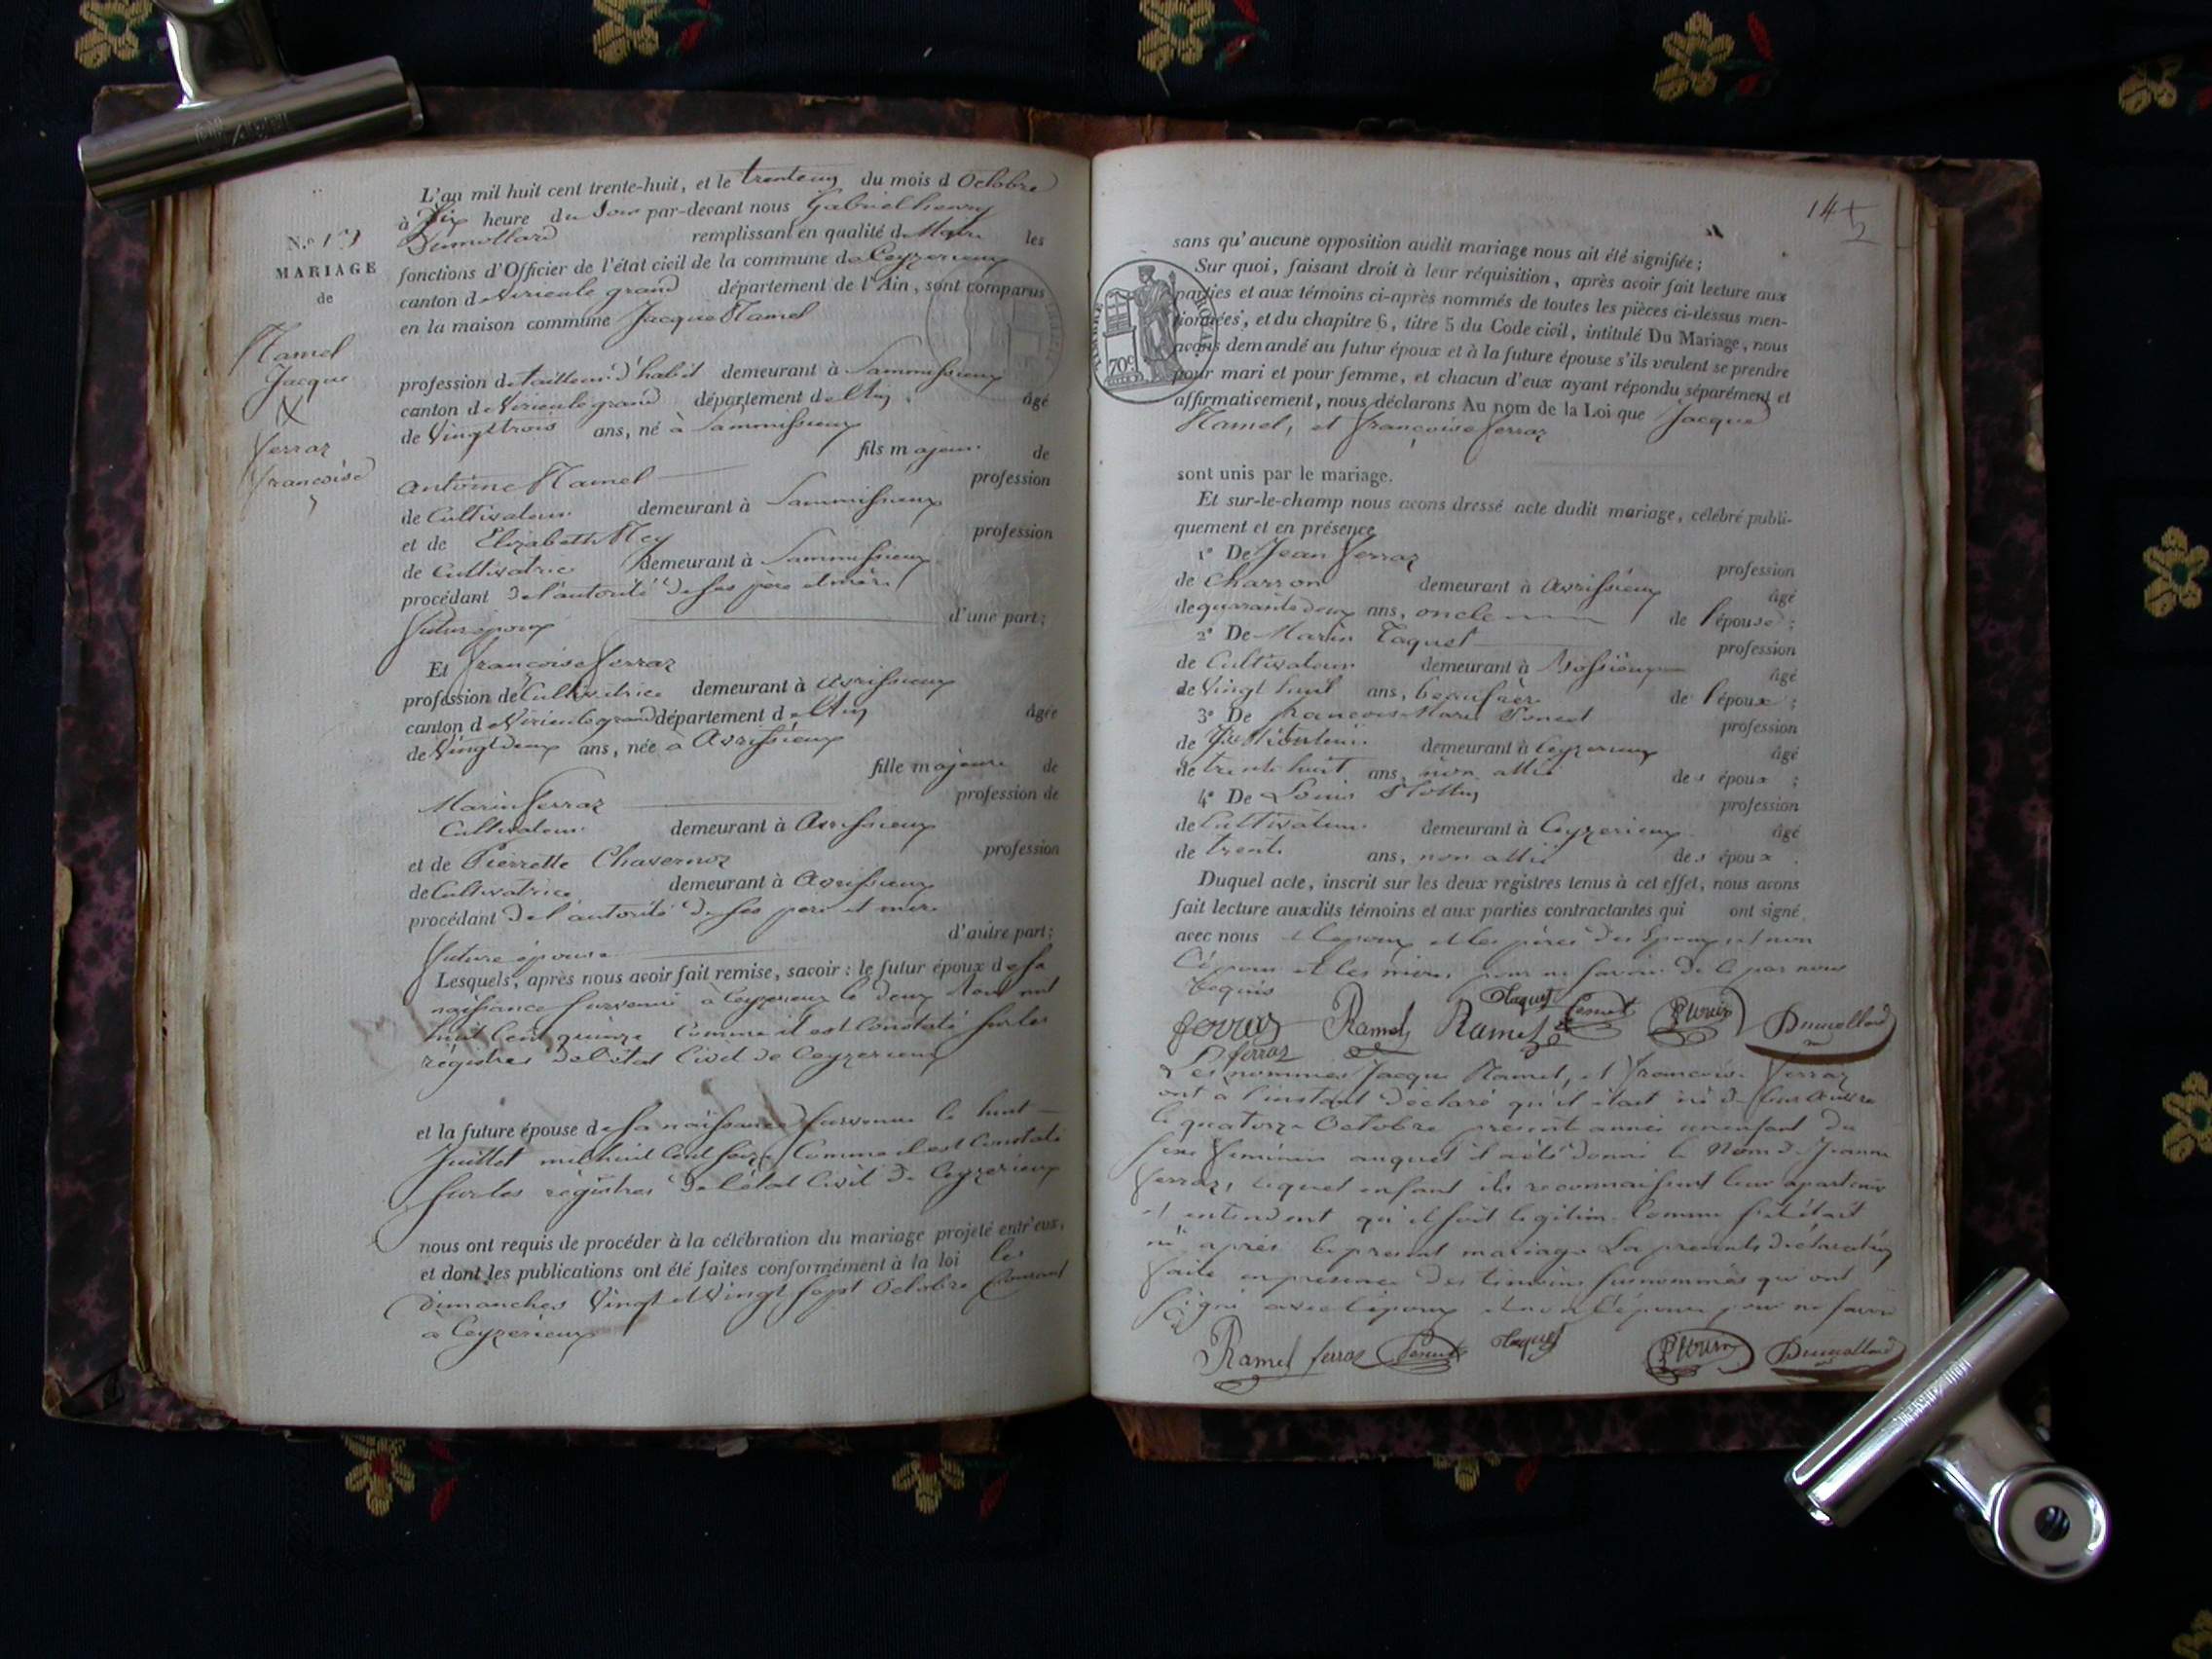 L'an mil huit cent trente-huit, et le trenteun du mois d Octobre
à Six heure du Soir par-devant nous Gabriel henry
Dumollard remplissant en qualité de Maire les
fonctions d'Officier de l'état civil de la commune de Ceyzerieux
canton de Virieulegrand département de l'Ain, sont comparus
en la maison commune Jacque Ramel
N.º 13
MARIAGE
de
Ramel
Jacque
X
ferraz
francoise
profession de tailleur d'habit demeurant à Sammissieux
canton de Virieulegrand département de l'Ain âgé
de Vingt trois ans, né à Sammissieux
fils majeur de
antoine Ramel profession
de Cultivateur demeurant à Sammissieux
et de Elizabeth Rey profession
de Cultivatrice demeurant à Sammissieux
procédant de l'autorité de ses père et mère
futur époux d'une part;
Et françoise ferraz
profession de Cultivatrice demeurant à Avrissieux
canton de Virieulegrand département de l'Ain âgée
de Vingt deux ans, née à Avrissieux
fille majeure de
Marin ferraz profession de
Cultivateur demeurant à Avrissieux
et de Pierrette Chavernoz profession
de Cultivatrice demeurant à Avrissieux
procédant de l'autorité de ses pere et mere
future épouse d'autre part;
Lesquels, après nous avoir fait remise, savoir : le futur époux de sa
naissance survenue à Ceyzerieux le deux mil
huit Cent quinze Comme il est Constaté sur les
régistres de l'état Civil de Ceyzerieux
et la future épouse de sa naissance survenue le huit
Juillet mil huit Cent seize Comme il est Constaté
sur les régistres de l'état Civil de Ceyzerieux
nous ont requis de procéder à la célébration du mariage projeté entr'eux,
et dont les publications ont été faites conformément à la loi les
dimanches Vingt et Vingt sept Octobre Courant
a Ceyzerieux
14
2
sans qu'aucune opposition audit mariage nous ait été signifiée;
Sur quoi, faisant droit à leur réquisition, après avoir fait lecture aux
parties et aux témoins ci-après nommés de toutes les pièces ci-dessus men-
tionnées, et du chapitre 6, titre 5 du Code civil, intitulé Du Mariage, nous
avons demandé au futur époux et à la future épouse s'ils veulent se prendre
pour mari et pour femme, et chacun d'eux ayant répondu séparément et
affirmativement, nous déclarons Au nom de la Loi que Jacque
Ramel, et françoise ferraz
TIMBRE ROYAL
70c
sont unis par le mariage.
Et sur-le-champ nous avons dressé acte dudit mariage, célébré publi-
quement et en présence
1º De Jean ferraz profession
de Charron demeurant à Avrissieux âgé
de quarante deux ans, oncle de l'épouse;
2º De Marin Taquet profession
de Cultivateur demeurant à âgé
de Vingt huit ans, beaufrère de l'époux;
3º De francois Marie profession
de demeurant à Ceyzerieux âgé
de trente huit ans, non allié des époux;
4º De Louis profession
de Cultivateur demeurant à Ceyzerieux âgé
de trente ans, non allié des époux.
Duquel acte, inscrit sur les deux registres tenus à cet effet, nous avons
fait lecture auxdits témoins et aux parties contractantes qui ont signé
avec nous et les pères des Epoux et non
l'épouse et les mères pour ne savoir de ce par nous
requis
ferraz Ramel Ramel Taquet Dumollard
ferraz
Les nommés Jacque Ramel, et francoise ferraz
ont a l'instant déclaré qu'il était né de leur
le quatorze Octobre présent année un enfant du
sexe féminin auquel il a été donné le Nom de Jeanne
ferraz, lequel enfant ils reconnaissent leur apartenir
et entendent qu'il soit légitime Comme s'il était
né après le présent mariage La présente déclaration
faite en présence des témoins susnommés qui ont
signé avec l'époux et non l'épouse pour ne savoir
Ramel ferraz Taquet Dumollard